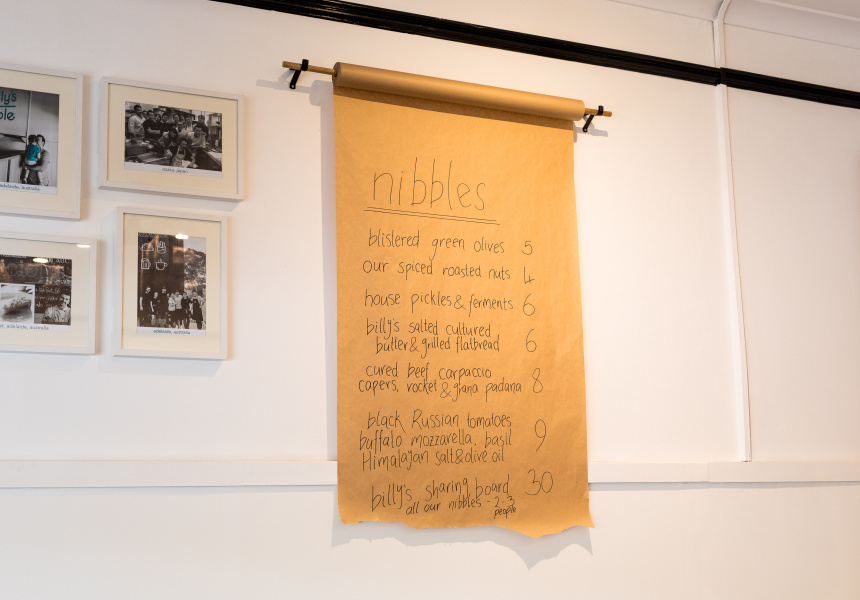 adelaide, australia
adelaide, australia
adelaide, australia
nibbles
blistered green olives 5
our spiced roasted nuts 4
house pickles & ferments 6
billy's salted cultured
butter & grilled flatbread 6
cured beef carpaccio
capers, rocket & grana padana 8
black Russian tomatoes
buffalo mozzarella, basil 9
Himalayan salt & olive oil
billy's sharing board 30
all our nibbles - 2-3
people